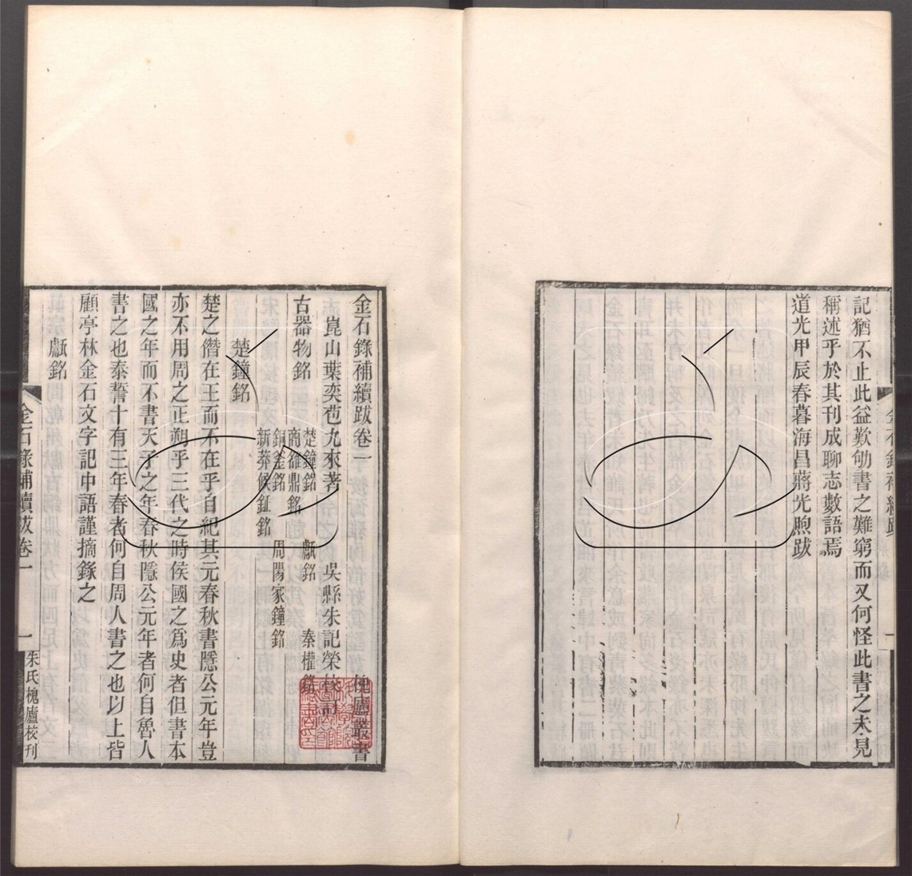 記猶不止此益歎劬書之難窮而又何怪此書之未見
稱述乎於其刊成聊志數語焉
道光甲辰春暮海昌蔣光煦跋
金石錄補續跋
金石錄補續跋卷一
槐廬叢書
崑山葉奕苞九來著
吳縣朱記榮校
古器物銘
楚鐘銘
甗銘
秦權銘
商雒鼎銘
周陽家鐘銘
新莽候鉦銘
楚鐘銘
楚之僭在王而不在乎自紀其元春秋書隱公元年豈
亦不用周之正朔乎三代之時侯國之爲史者但書本
國之年而不書天子之年春秋隱公元年者何自魯人
書之也泰誓十有三年春者何自周人書之也以上皆
顧亭林金石文字記中語謹摘錄之
甗銘
金石錄補續跋卷一
一
朱氏槐廬校刊